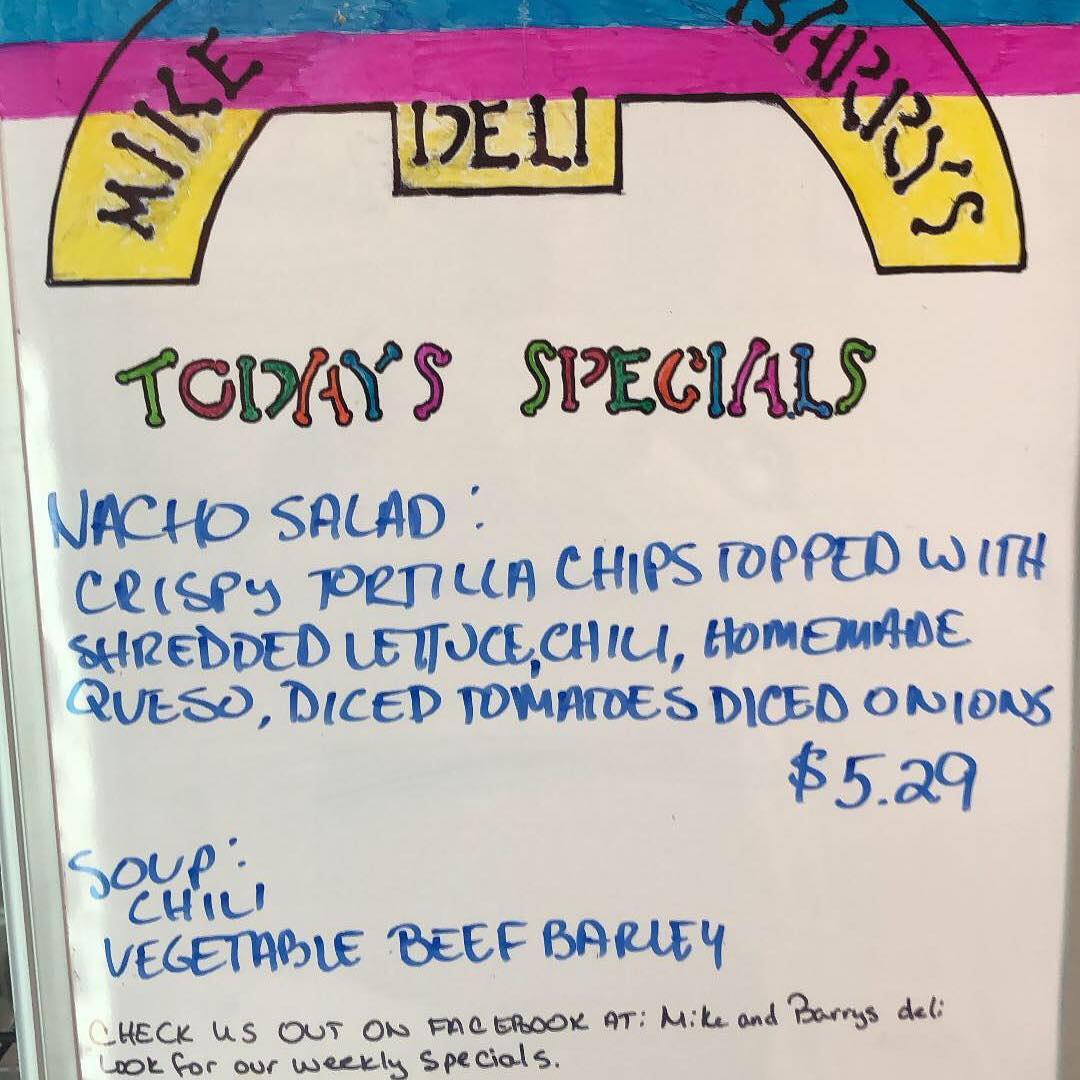 MIKE
BARRY'S
DELI
TODAY'S SPECIALS
NACHO SALAD:
CRISPY TORTILLA CHIPS TOPPED WITH
SHREDDED LETTUCE, CHILI, HOMEMADE
QUESO, DICED TOMATOES DICED ONIONS
$5.29
SOUP:
CHILI
VEGETABLE BEEF BARLEY
CHECK US OUT ON FACEBOOK AT: Mike and Barrys deli
Look for our weekly specials.